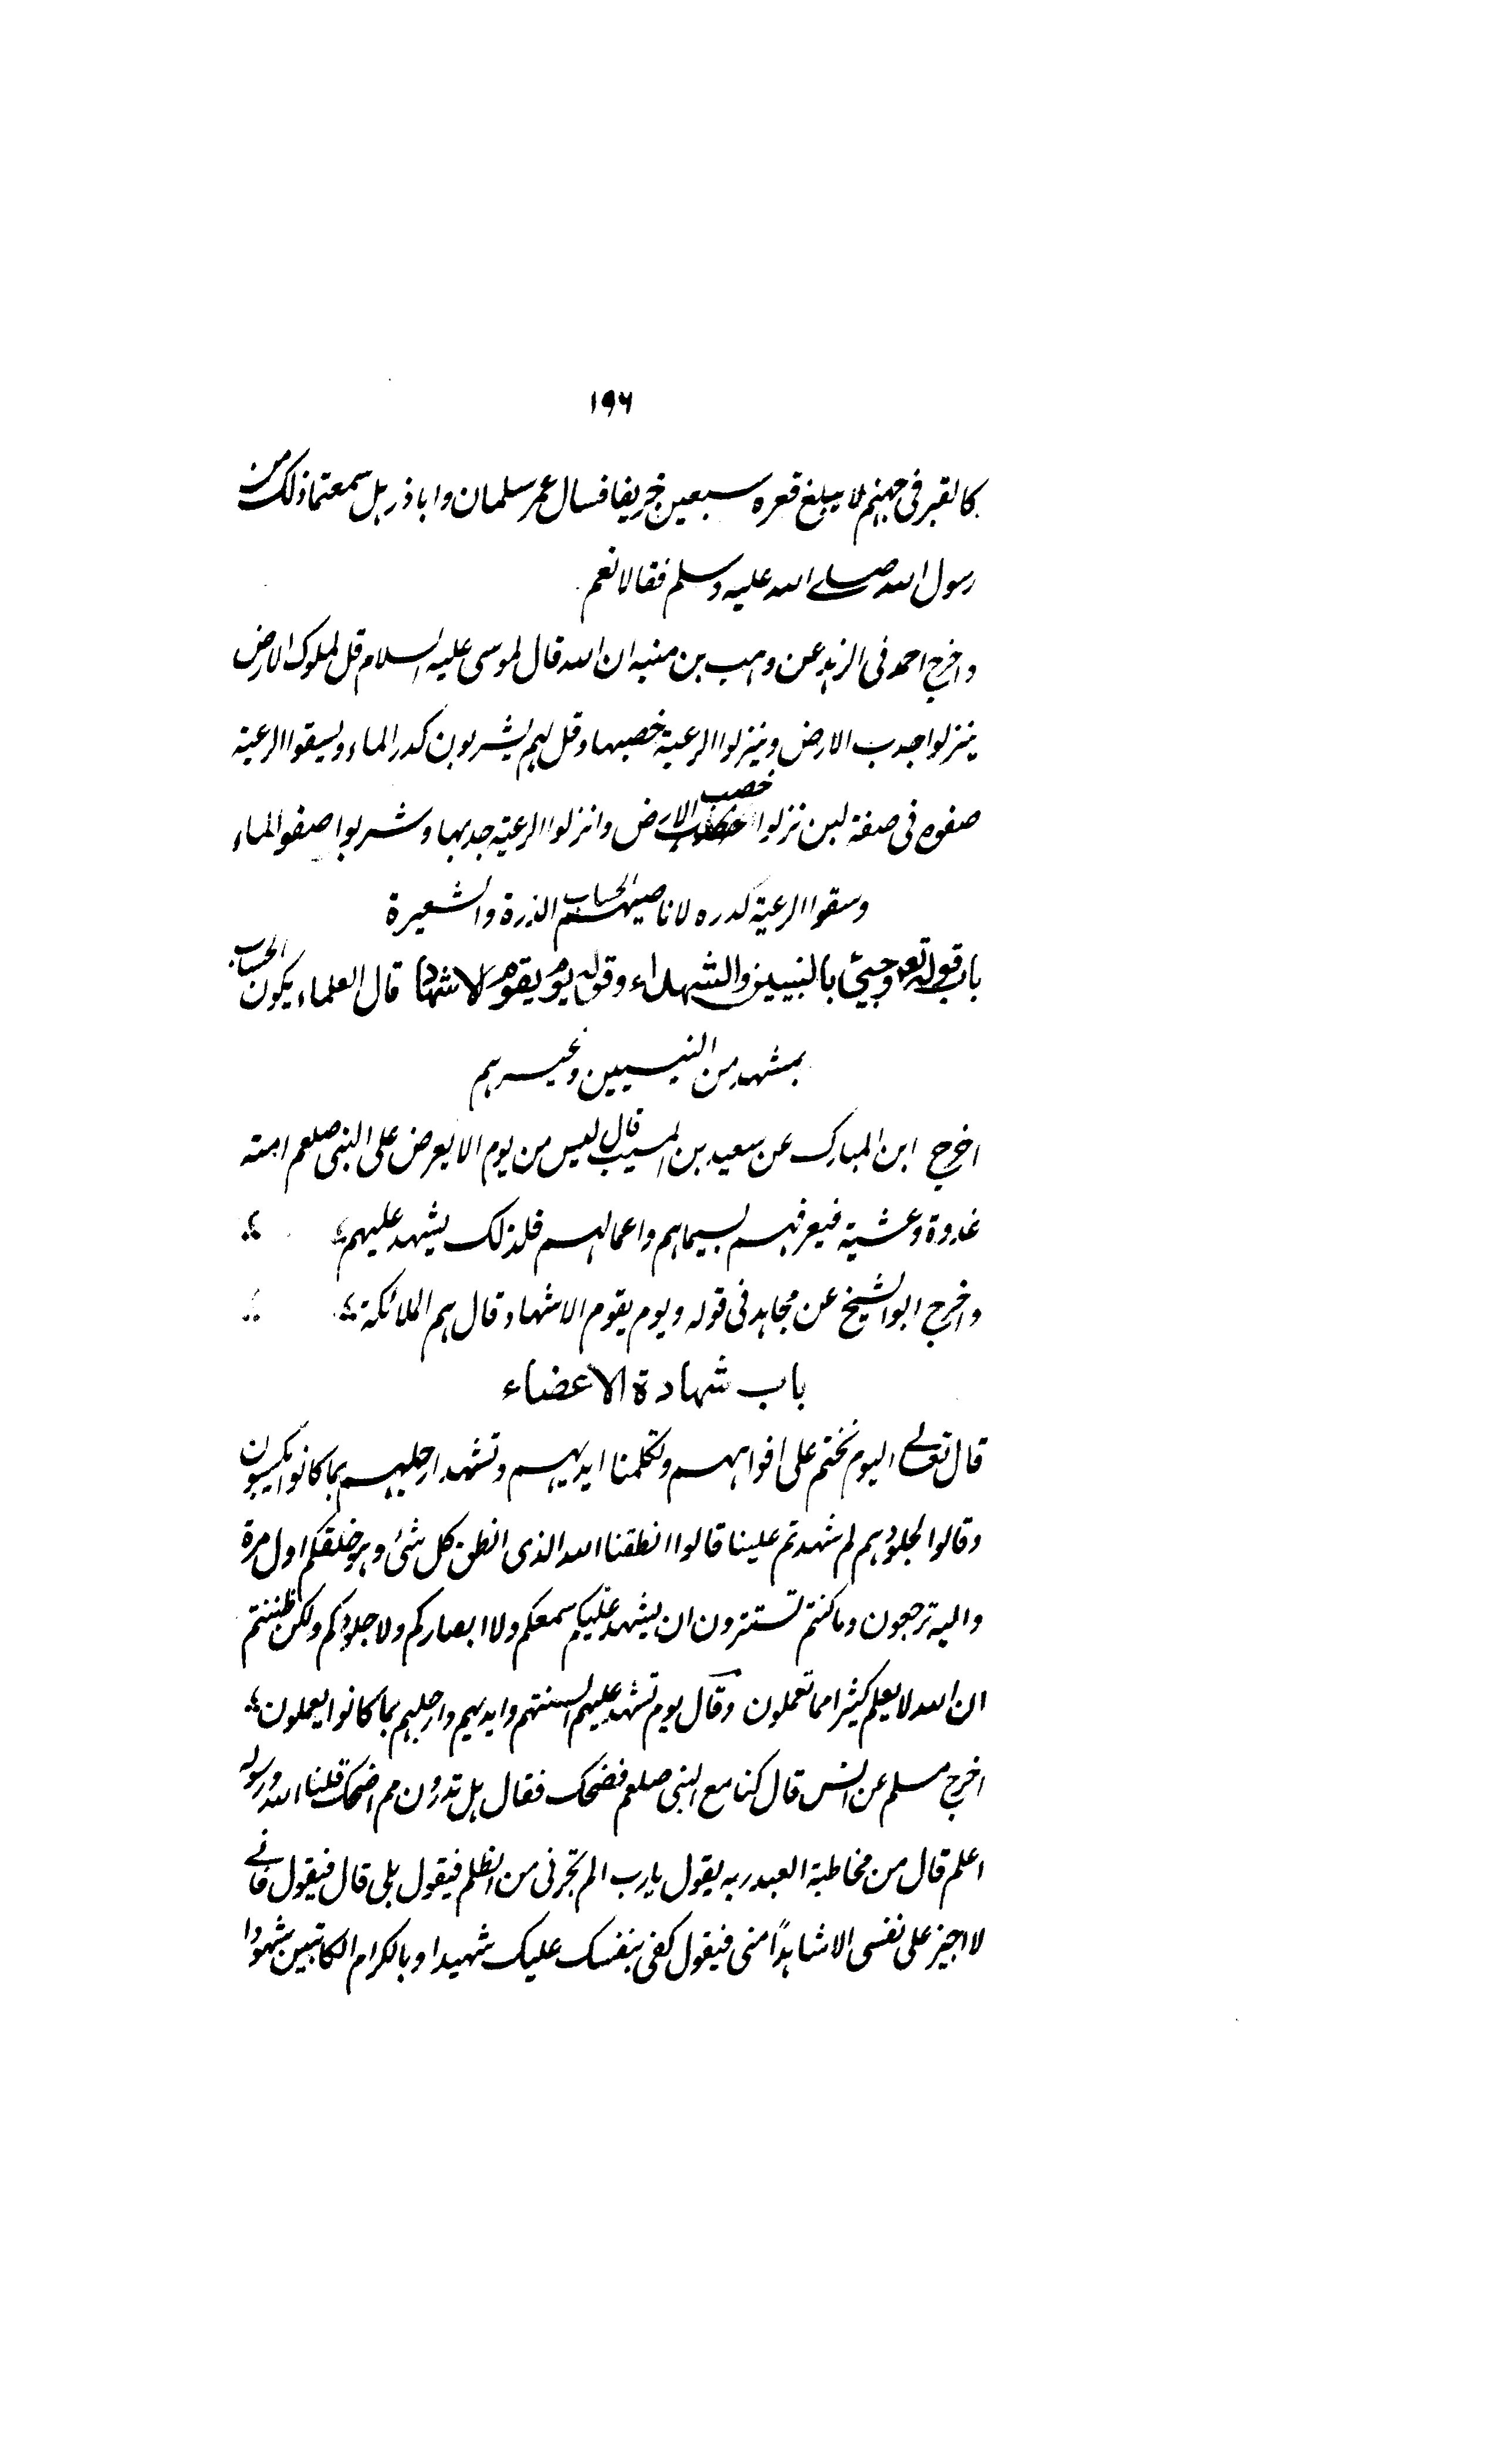 ۱۹۶
کالقبر فی جہنم لا یبلغ قعرہ سبعین خریفا فسال عمر سلمان واباذر ہل سمعتما ذلک من
رسول اللہ صلے اللہ علیہ وسلم فقالا نعم
واخرج احمد فی الزہد عن وہب بن منبہ ان اللہ قال لموسی علیہ السلام قل لملوک الارض
ینزلوا جدب الارض وینزلوا الرعیۃ خصبہا وقل لہم یشربون کدر الماء ولیسقوا الرعیۃ
صفوہ فی صفۃ لبن نزلوا خصب الارض وانزلوا الرعیۃ جدبہا وشربوا صفو الماء
وسقوا الرعیۃ کدرہ لاناصیہنہم الحساب الذرۃ والشعیرۃ
باب قولہ تعہ وجیئ بالنبیین والشہداء وقولہ یوم یقوم الاشہاد قال العلماء یکون الحساب
بمشہد من النبیین وغیرہم
اخرج ابن المبارک عن سعید بن المسیب قال لیس من یوم الا یعرض علی النبی صلعم امتہ
غدوۃ وعشیۃ فیعرفہم بسیماہم واعمالہم فلذلک یشہد علیہم
واخرج ابو الشیخ عن مجاہد فی قولہ ویوم یقوم الاشہاد قال ہم الملائکۃ
باب شہادۃ الاعضاء
قال تعالے الیوم نختم علی افواہہم وتکلمنا ایدیہم وتشہد ارجلہم بما کانوا یکسبون
وقالوا لجلودہم لم شہدتم علینا قالوا انطقنا اللہ الذی انطق کل شئ وہو خلقکم اول مرۃ
والیہ ترجعون وماکنتم تستترون ان یشہد علیکم سمعکم ولا ابصارکم ولا جلودکم ولکن ظننتم
ان اللہ لا یعلم کثیرا مما تعملون وقال یوم تشہد علیہم السنتہم وایدیہم وارجلہم بما کانوا یعملون
اخرج مسلم عن انس قال کنا مع النبی صلعم فضحک فقال ہل تدرون مم اضحک قلنا اللہ ورسولہ
اعلم قال من مخاطبۃ العبد ربہ یقول یارب الم تجرنی من الظلم فیقول بلی قال فیقول فانے
لا اجیز علی نفسی الا شاہدًا منی فیقول کفی بنفسک علیک شہیدا وبالکرام الکاتبین شہودا